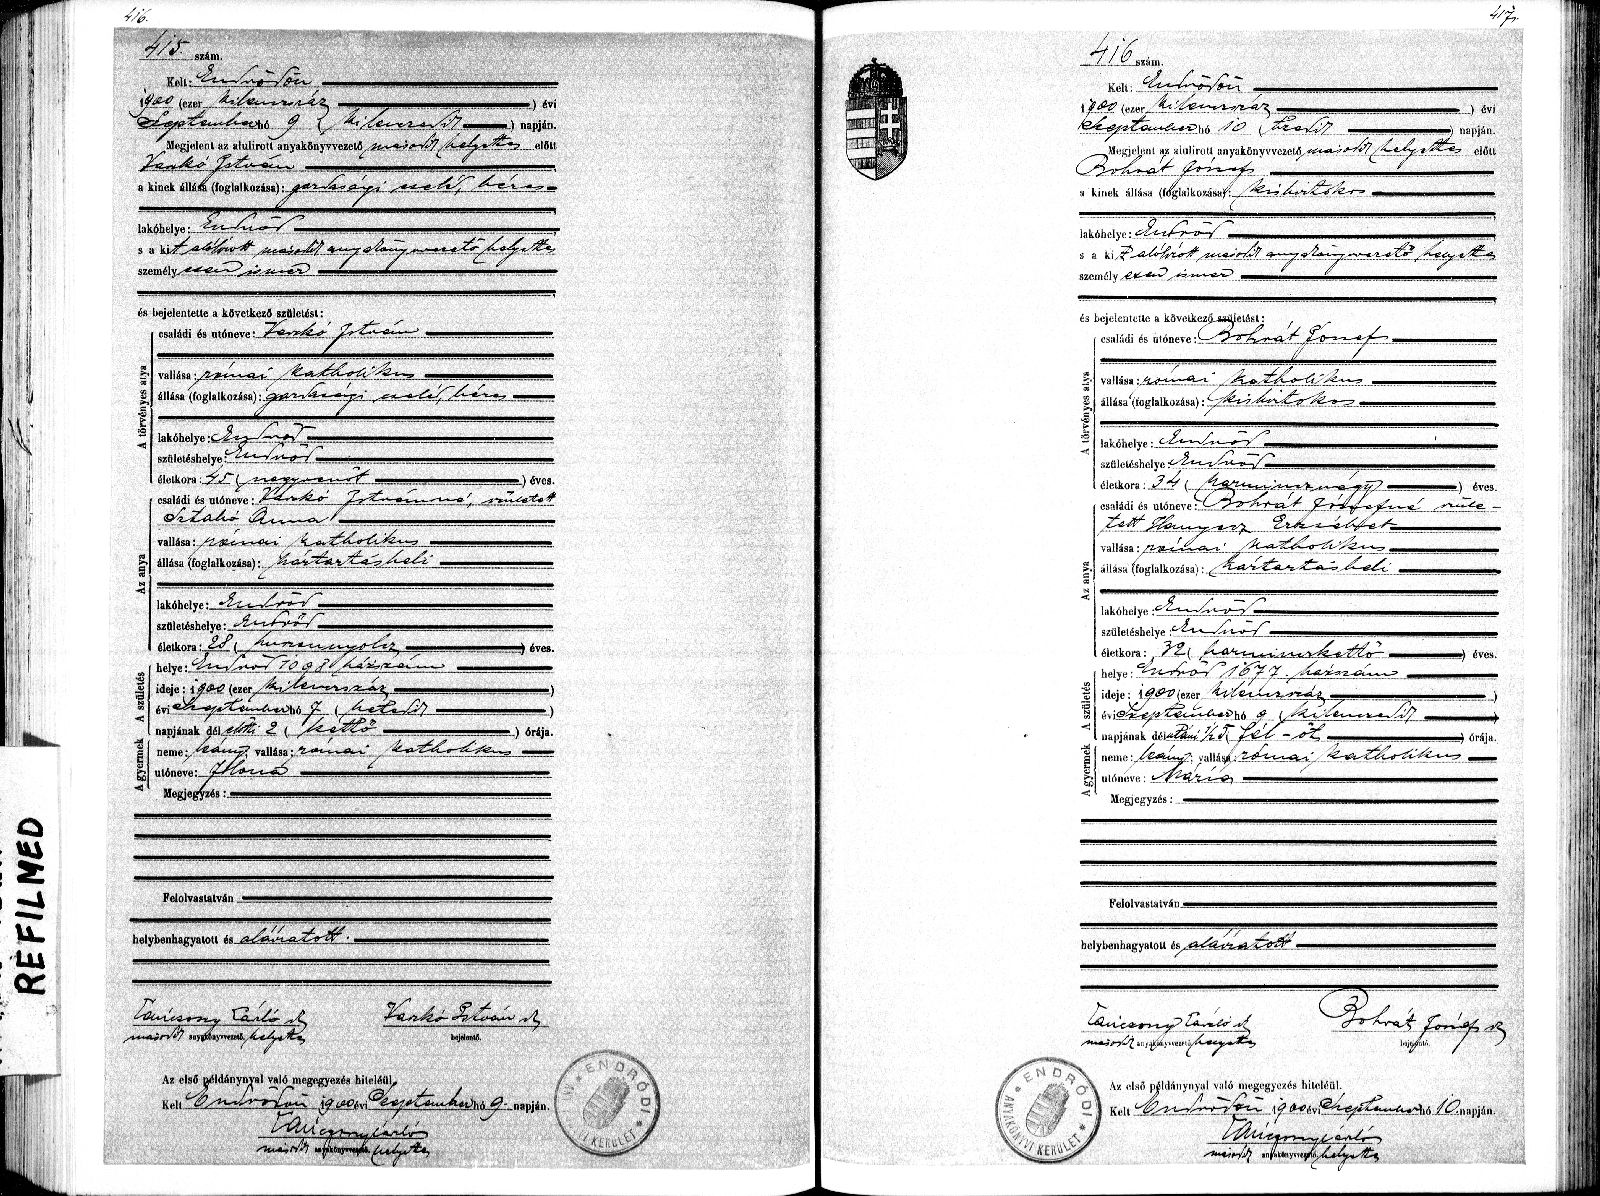 416.
415 szám.
Kelt: Endrődön
1900 (ezer kilenczszáz) évi
Szeptember hó 9 (kilenczedik) napján.
Megjelent az alulirott anyakönyvvezető másodh helyettes előtt
Varkó István
a kinek állása (foglalkozása): gazdasági cseléd, béres
lakóhelye: Endrőd
s a kit alólirott másodh anyakönyvvezető helyettes
személyesen ismer
és bejelentette a következő születést:
A törvényes atya
családi és utóneve: Varkó István
vallása: római katholikus
állása (foglalkozása): gazdasági cseléd, béres
lakóhelye: Endrőd
születéshelye: Endrőd
életkora: 45 (negyvenöt) éves.
Az anya
családi és utóneve: Varkó Istvánné, született
Sztahó Anna
vallása: római katholikus
állása (foglalkozása): háztartásbeli
lakóhelye: Endrőd
születéshelye: Endrőd
életkora: 28 (huszonnyolcz) éves.
A születés
helye: Endrőd 1098 házszám
ideje: 1900 (ezer kilenczszáz)
évi Szeptember hó 7 (hetedik)
napjának dél előtti 2 (kettő) órája.
A gyermek
neme: leány; vallása: római katholikus
utóneve: Ilona
Megjegyzés:
Felolvastatván
helybenhagyatott és aláiratott.
Tancsony László Varkó István
másodh anyakönyvvezető helyettes bejelentő.
Az első példánynyal való megegyezés hiteléül.
Kelt Endrődön 1900 évi Szeptember hó 9. napján.
Tancsony László
másodh anyakönyvvezető helyettes
ENDRŐDI KERÜLET
REFILMED
417.
416 szám.
Kelt: Endrődön
1900 (ezer kilenczszáz) évi
Szeptember hó 10 (tizedik) napján.
Megjelent az alulirott anyakönyvvezető másodh helyettes előtt
Bohrát József
a kinek állása (foglalkozása): kisbirtokos
lakóhelye: Endrőd
s a kit alólirott másodh anyakönyvvezető helyettes
személyesen ismer
és bejelentette a következő születést:
A törvényes atya
családi és utóneve: Bohrát József
vallása: római katholikus
állása (foglalkozása): kisbirtokos
lakóhelye: Endrőd
születéshelye: Endrőd
életkora: 34 (harmincznégy) éves.
Az anya
családi és utóneve: Bohrát Józsefné szüle-
tett Hanyecz Erzsébet
vallása: római katholikus
állása (foglalkozása): háztartásbeli
lakóhelye: Endrőd
születéshelye: Endrőd
életkora: 32 (harminczkettő) éves.
A születés
helye: Endrőd 1677. házszám
ideje: 1900 (ezer kilenczszáz)
évi Szeptember hó 9 (kilenczedik)
napjának délutáni ½5 (fél-öt) órája.
A gyermek
neme: leány; vallása: római katholikus
utóneve: Mária
Megjegyzés:
Felolvastatván
helybenhagyatott és aláiratott
Tancsony László Bohrát József
másodh anyakönyvvezető helyettes bejelentő.
Az első példánynyal való megegyezés hiteléül.
Kelt Endrődön 1900 évi Szeptember hó 10. napján.
Tancsony László
másodh anyakönyvvezető helyettes
ENDRŐDI ANYAKÖNYVI KERÜLET